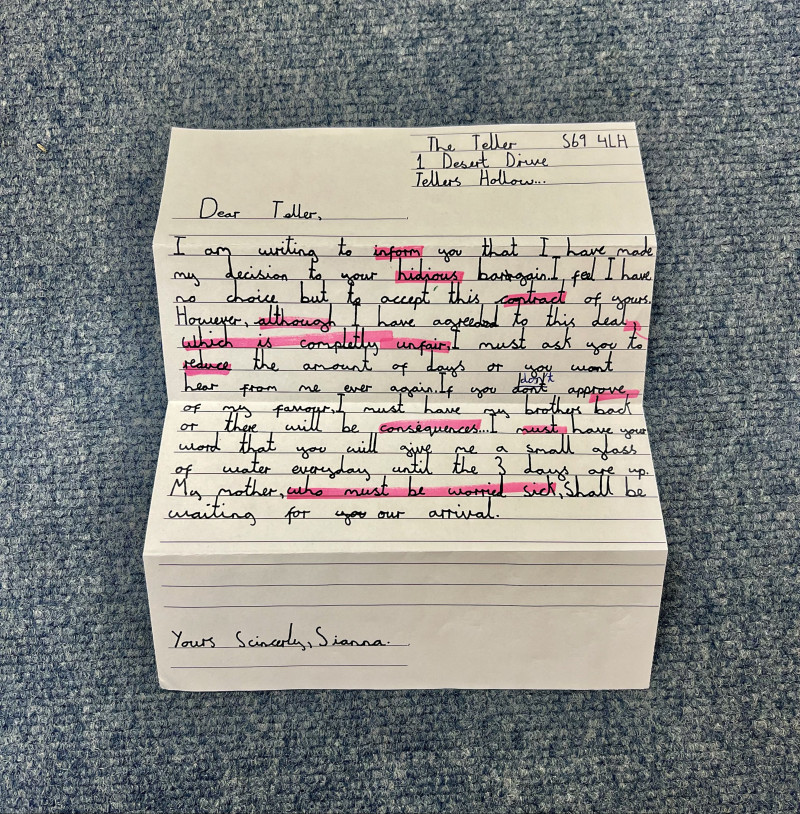 The Teller S69 4LH
1 Desert Drive
Tellers Hollow...
Dear Teller,
I am writing to inform you that I have made
my decision to your hidious bargain. I feel I have
no choice but to accept this contract of yours.
However, although I have agreed to this deal,
which is completly unfair, I must ask you to
reduce the amount of days or you wont
hear from me ever again. If you don't approve
of my favour, I must have my brothers back
or there will be consequences... I must have your
word that you will give me a small glass
of water everyday until the 3 days are up.
My mother, who must be worried sick, Shall be
waiting for our arrival.
Yours Scincerly, Sianna.